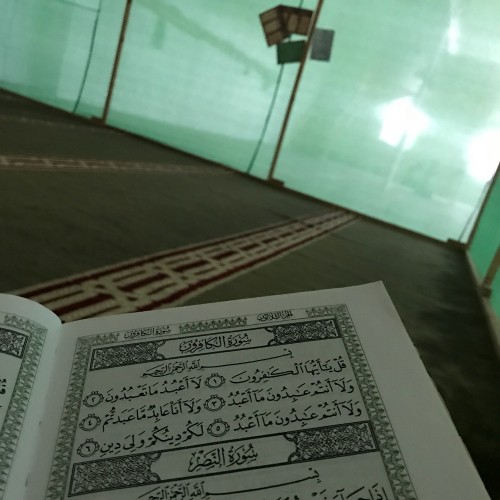 سُورَةُ الكَافِرُونَ الجُزْءُ الثَّلَاثُونَ
سُورَةُ الكَافِرُونَ
بِسْمِ اللَّهِ الرَّحْمَٰنِ الرَّحِيمِ
قُلْ يَٰٓأَيُّهَا الْكَٰفِرُونَ ١ لَآ أَعْبُدُ مَا تَعْبُدُونَ ٢
وَلَآ أَنتُمْ عَٰبِدُونَ مَآ أَعْبُدُ ٣ وَلَآ أَنَا۠ عَابِدٌ مَّا عَبَدتُّمْ ٤
وَلَآ أَنتُمْ عَٰبِدُونَ مَآ أَعْبُدُ ٥ لَكُمْ دِينُكُمْ وَلِىَ دِينِ ٦
سُورَةُ النَّصْرِ
بِسْمِ اللَّهِ الرَّحْمَٰنِ الرَّحِيمِ
إِذَا جَآءَ